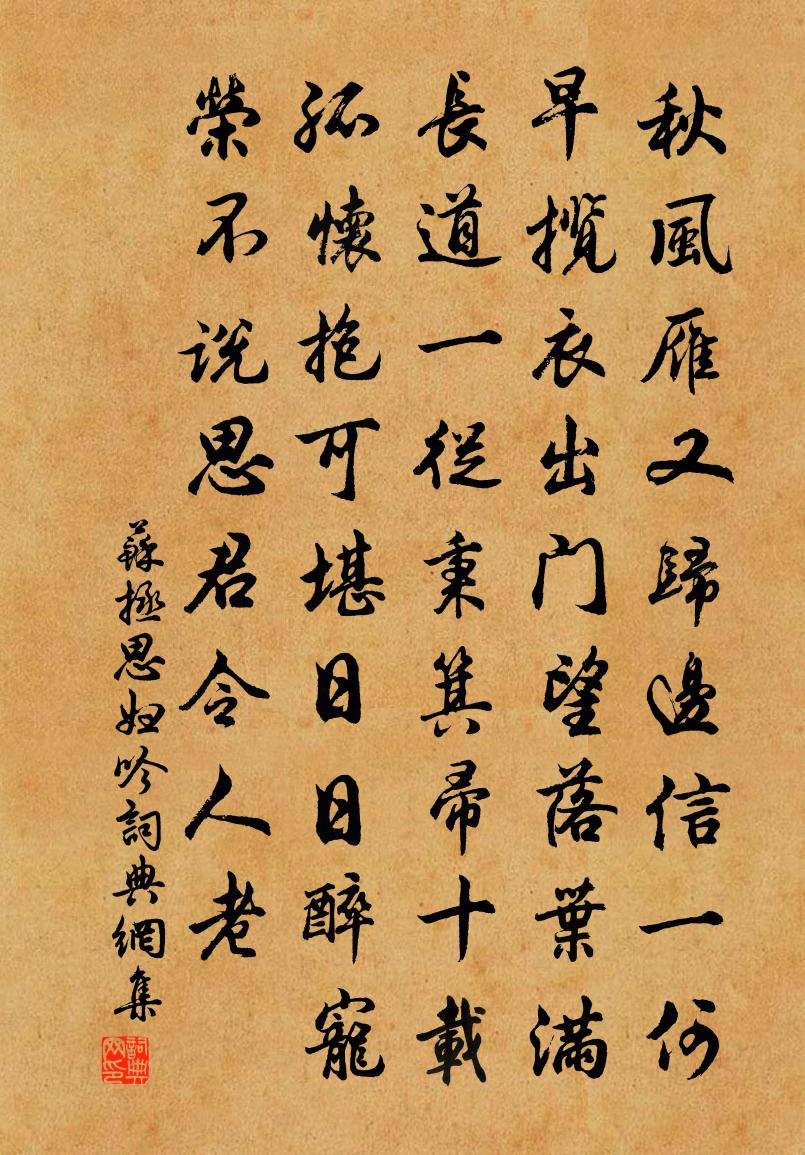 秋風雁又歸邊信一何
早攬衣出門望落葉滿
長道一從秉箕帚十載
孤懷抱可堪日日醉寵
榮不說思君令人老
蘇拯思婦吟詞典網集
詞典网印